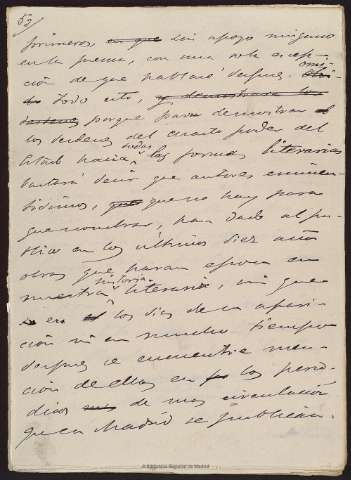 53
primeros, en que sin apoyo ninguno
en la prensa, con una sola excep-
ción de que hablaré despues. omi-
to todo esto, y demostrara los
porque para demostrar el
los desdenes del cuarto poder del
Estado hacia todas las formas literarias
bastará decir que autores eminen-
tisimos, que que no hay para
que nombrar, han dado al pu-
blico en los ultimos diez años
obras que haran epoca en
nuestra historia literaria, sin que
en el los dias de su apari-
ción ni en mucho tiempo
despues se encuentre men-
ción de ellas en los perio-
dicos mas de mas circulación
que en Madrid se publican.
Biblioteca Regional de Madrid